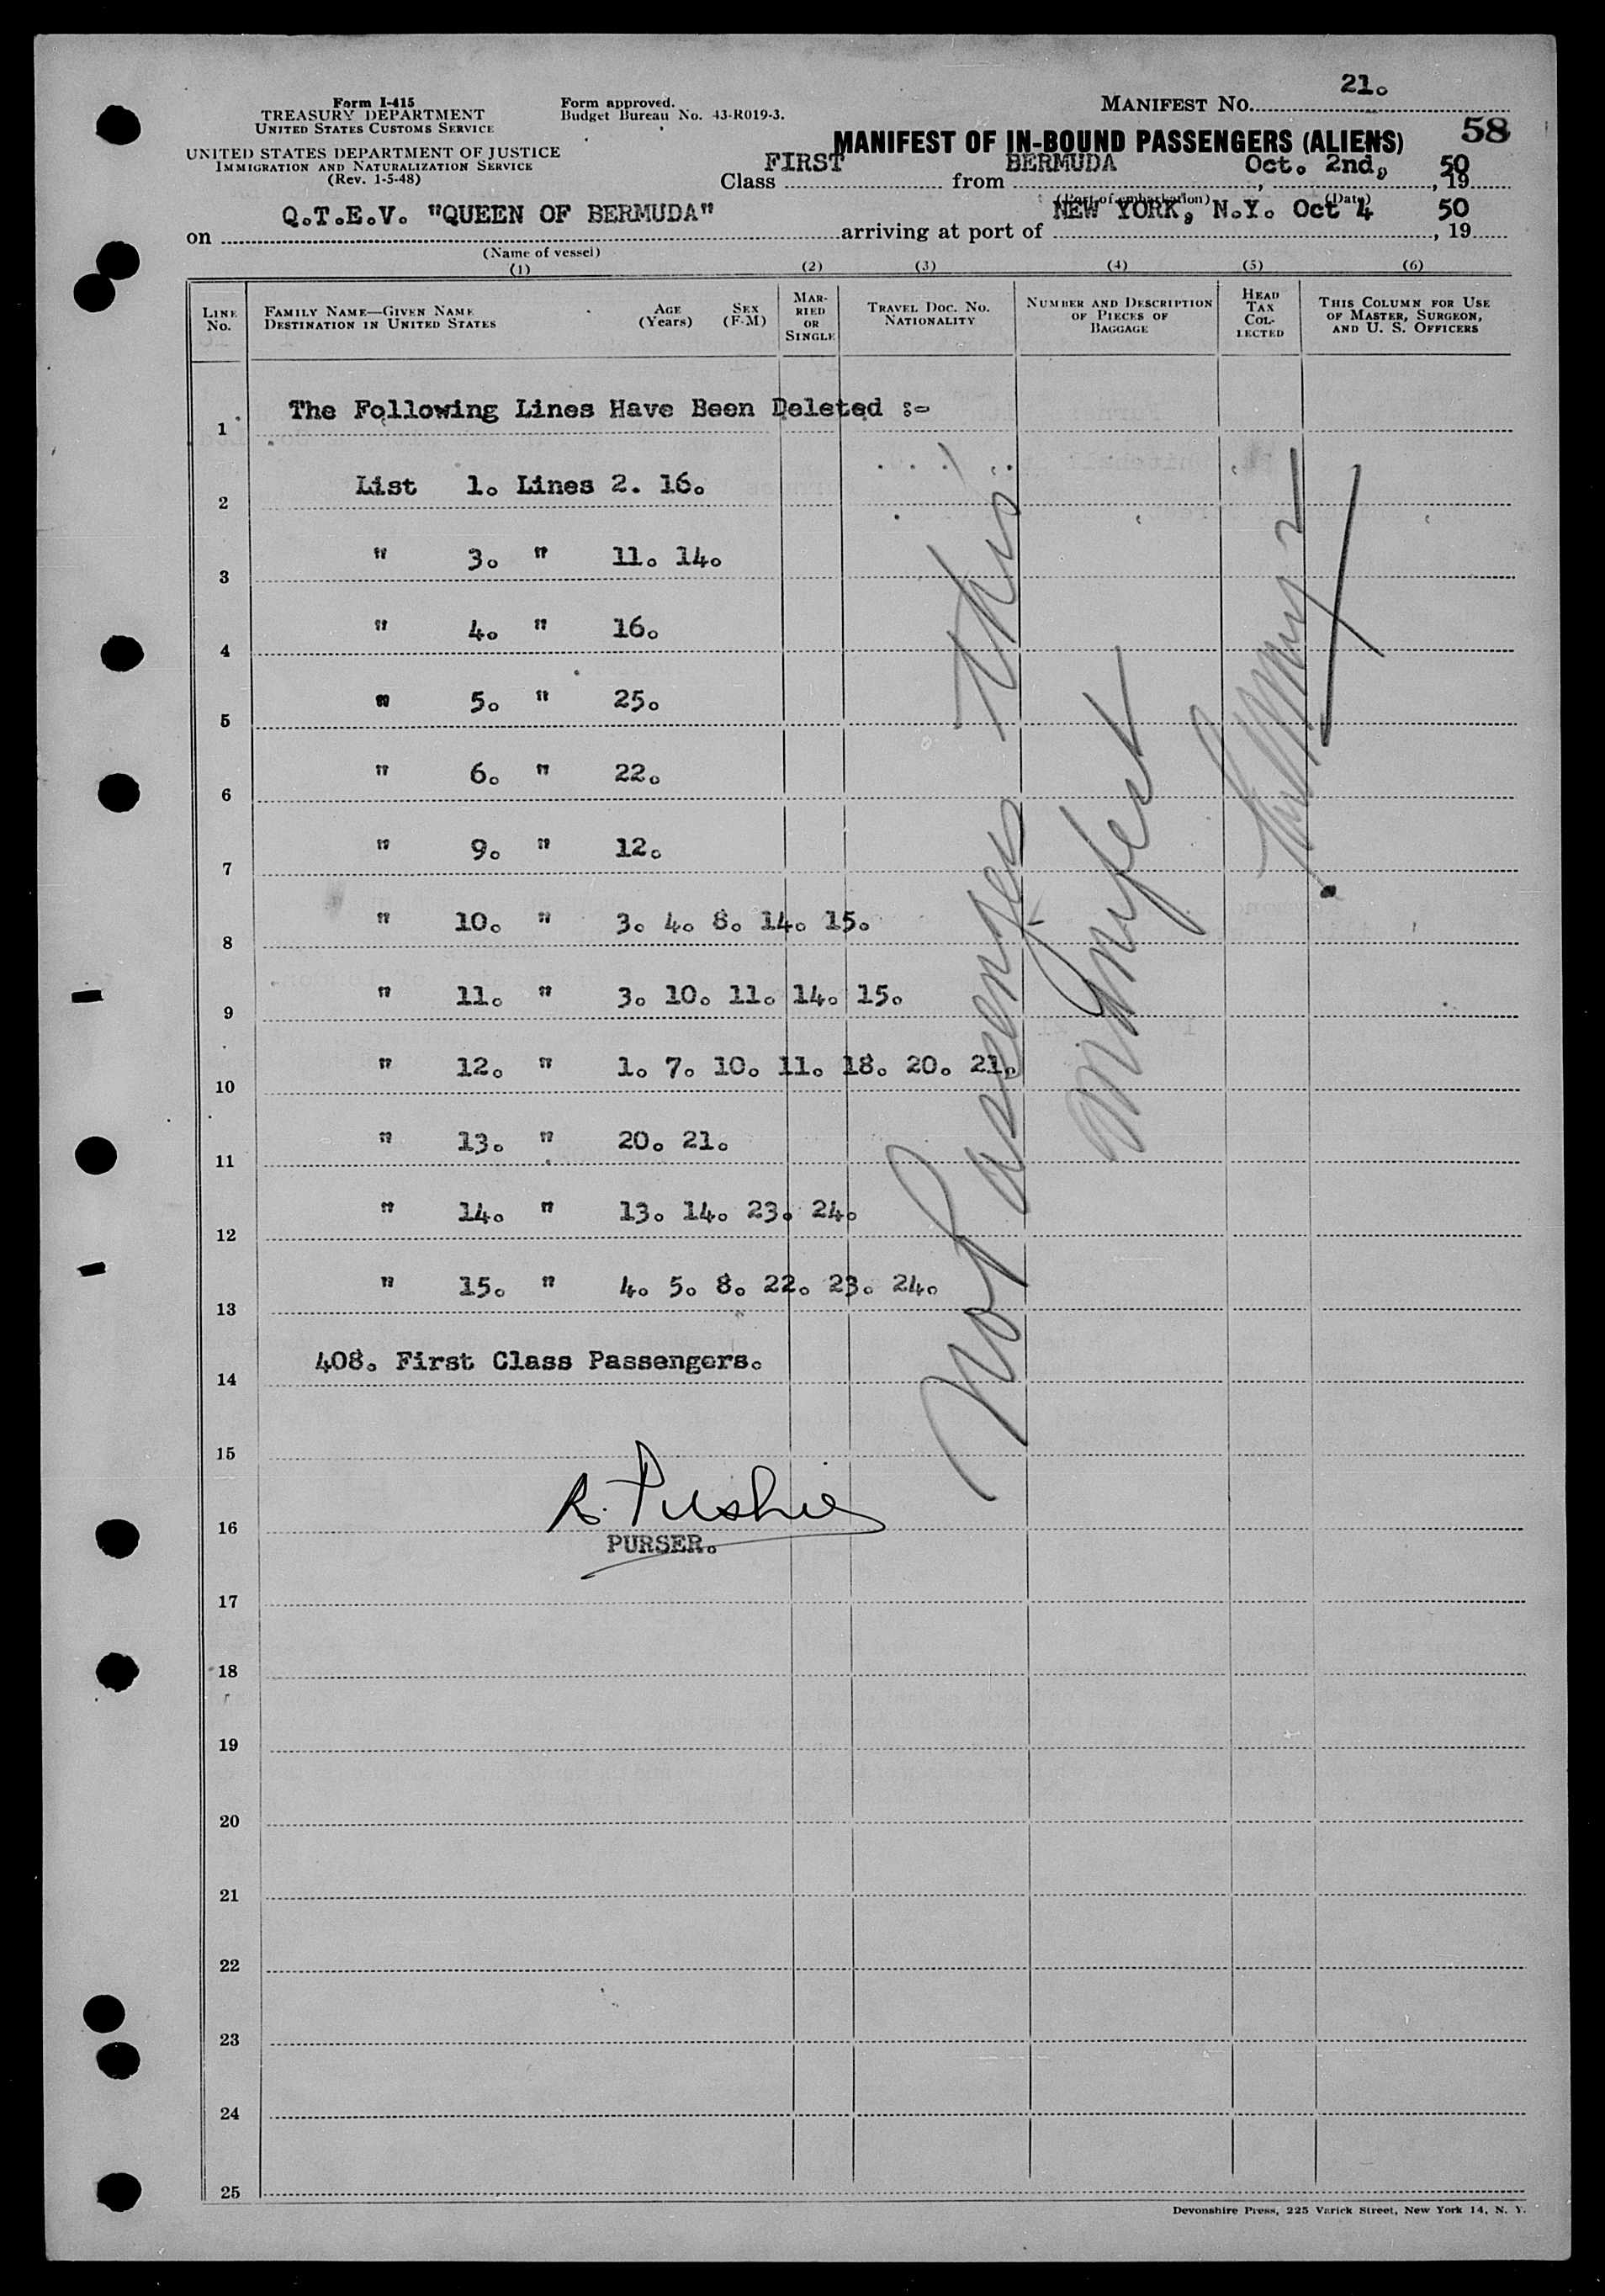 21.
Form I-415
TREASURY DEPARTMENT
UNITED STATES CUSTOMS SERVICE
Form approved.
Budget Bureau No. 43-R019-3.
MANIFEST NO.
58
UNITED STATES DEPARTMENT OF JUSTICE
IMMIGRATION AND NATURALIZATION SERVICE
(Rev. 1-5-48)
MANIFEST OF IN-BOUND PASSENGERS (ALIENS)
Class FIRST from BERMUDA, Oct. 2nd, , 1950
(Port of embarkation) (Date)
on Q.T.E.V. "QUEEN OF BERMUDA" arriving at port of NEW YORK, N.Y. Oct 4, 1950
(Name of vessel)
(1) (2) (3) (4) (5) (6)
LINE No.
FAMILY NAME—GIVEN NAME
DESTINATION IN UNITED STATES
AGE (Years)
SEX (F-M)
MARRIED OR SINGLE
TRAVEL DOC. NO.
NATIONALITY
NUMBER AND DESCRIPTION OF PIECES OF BAGGAGE
HEAD TAX COLLECTED
THIS COLUMN FOR USE OF MASTER, SURGEON, AND U. S. OFFICERS
1 The Following Lines Have Been Deleted :-
2 List 1. Lines 2. 16.
3 " 3. " 11. 14.
4 " 4. " 16.
5 " 5. " 25.
6 " 6. " 22.
7 " 9. " 12.
8 " 10. " 3. 4. 8. 14. 15.
9 " 11. " 3. 10. 11. 14. 15.
10 " 12. " 1. 7. 10. 11. 18. 20. 21.
11 " 13. " 20. 21.
12 " 14. " 13. 14. 23. 24.
13 " 15. " 4. 5. 8. 22. 23. 24.
14 408. First Class Passengers.
15
16 R. Pushie
PURSER.
17
18
19
20
21
22
23
24
25
No Passenger this
Manifest
Devonshire Press, 225 Varick Street, New York 14, N. Y.